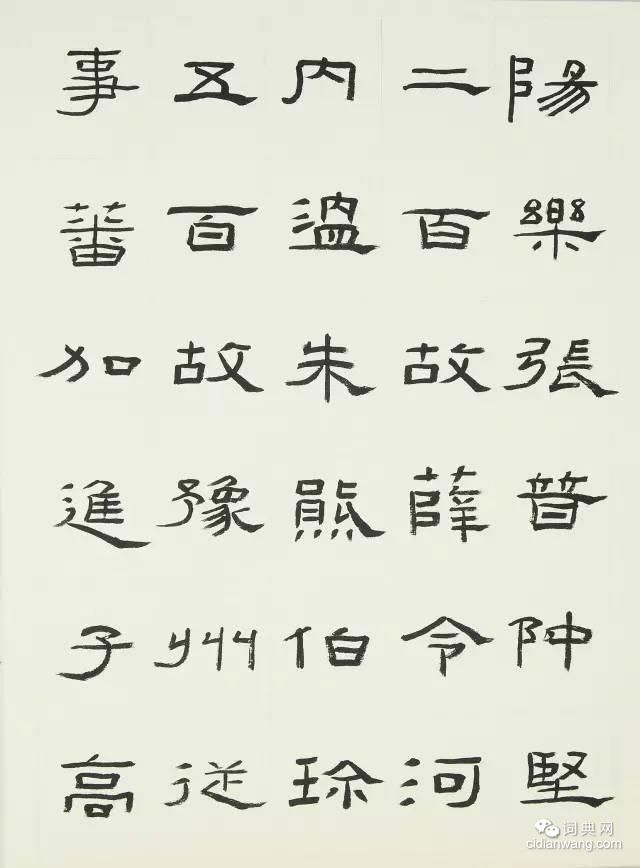 陽樂張普仲堅
二百故薛令河
内溫朱熊伯珍
五百故豫州從
事蕃加進子高
词典网
cidianwang.com